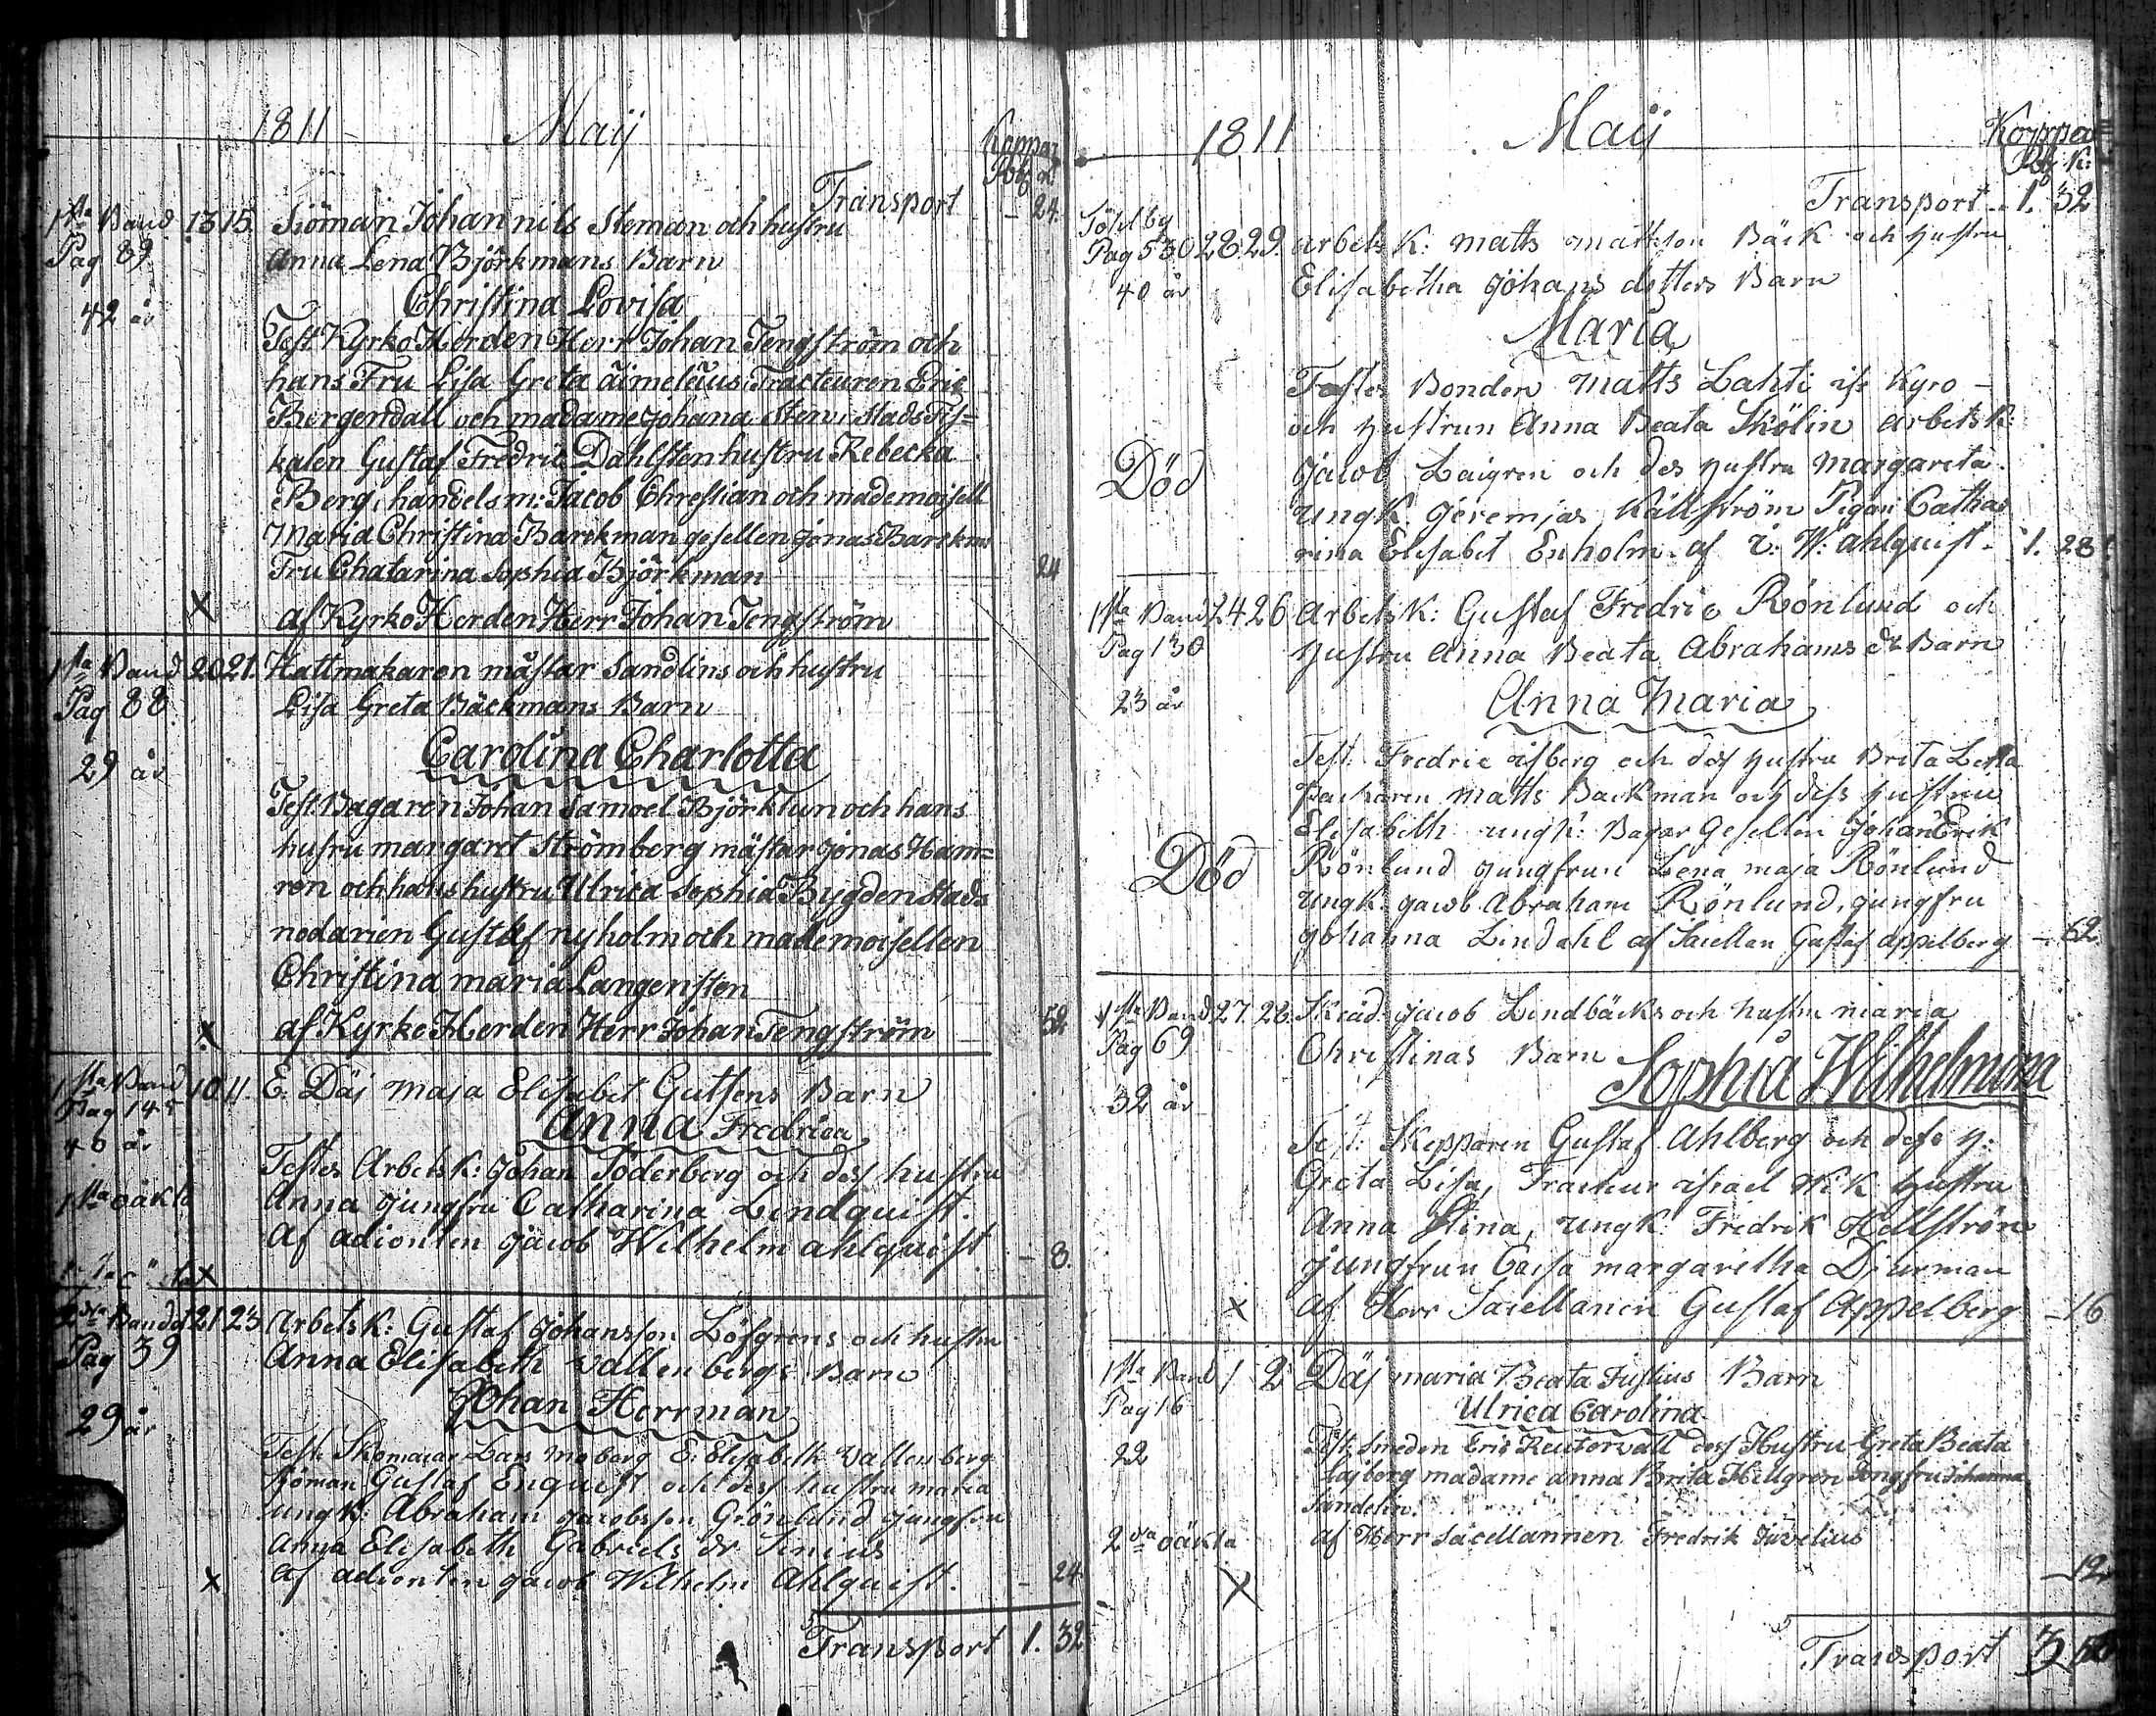 1811 Maij
Koppar
Transport – 24.
1sta Band 13 15. Siöman Johan nils Steman och hustru
Pag 89 Anna Lena Björkmans Barn
Christina Lovisa
42 år
Test. Kyrko Herden Herr Johan Tengström och
hans Fru Lisa Greta Tracteuren Eric
Bergendall och madame Johana Sten, Stads Fis=
kalen Gustaf Fredric Dahlsten hustru Rebecka
Berg, handelsm: Jacob Chrestian och mademoisell
Maria Christina Barckman gesellen Jonas Barckm
Fru Chatarina Sophia Björkman 24
x af Kyrko Herden Herr Johan Tengström
1sta Band 20 21. Hattmakaren mästar Sandlins och hustru
Pag 88. Lisa Greta Bäckmans Barn
Carolina Charlotta
29 år
Test. Bagaren Johan Samoel Björklun och hans
husru margaret Strömberg mästar Jonas Ham=
ren och hans hustru Ulrica Sophia Bygden Stads
nodarien Gustaf nyholm och mademoisellen
Christina maria Langensten
x af Kyrko Herden Herr Johan Tengström 52
1sta Band 10 11. E. Däj Maja Elisabet Gutsens Barn
Pag 145
Anna Fredrica
40 år
Testes Arbets K: Johan Söderberg och des hustru
1sta oäkta Anna jungfru Catharina Lindquist.
af adionten Jacob Wilhelm Ahlquist – 8.
x
2dra Band 21 23 Arbets K: Gustaf Johansson Löfgrens och hustru
Pag 39 Anna Elisabeth Wallenbergs Barn
Johan Herrman
29 år
Test: Skomacar Lars Moberg E: Elisabeth Wallenberg
Sjöman Gustaf Enquist och dess hustru maria
ungk: Abraham Jacobsson Grönlund jungfru
Anna Elisabeth Gabriels dr Senius
x af adionten Jacob Wilhelm Ahlquist. – 24
Transport 1. 32
1811 Maij
Koppar
Transport 1. 32
Pag 530 28 29. arbets K: Matts Mattsson Bäck och hustru
40 år Elisabetha Johans dotters Barn
Maria
Testes Bonden Matts Lahti Kyro –
och hustrun Anna Beata Skölin arbets K:
Död Jacob Laigren och des hustru Margareta
ungk. Jeremias Källström Pigan Catha
rina Elisabet Enholm af W: Ahlquist. 1. 28
1sta Band 24 26 Arbets K: Gustaf Fredric Rönlund och
Pag 130 hustru Anna Beata Abrahams dr Barn
23 år Anna Maria
Test: Fredric åsberg och dess hustru Brita Lena
Matts Backman och dess hustru
Elisabeth ungk: Bagar Gesellen Johan Erik
Död Rönlund jungfrun Lena Maja Rönlund
ungk. Jacob Abraham Rönlund, jungfru
Johanna Lindahl af Sacellan Gustaf Appelberg – 62
1sta Band 27. 28. Jacob Lindbäcks och hustru Maria
Pag 69 Christinas Barn Sophia Wilhelmina
32 år
Test: Skepparen Gustaf Ahlberg och dess h:
Greta Lisa, Tracteur Wik hustru
Anna Stina, ungk: Fredrik Hellström
jungfrun Caisa Margaretha Djurman
x af Herr Sacellanen Gustaf Appelberg – 16
1sta Band 1 2 Däj Maria Beata Justius Barn
Pag 16 Ulrica Carolina
22 Test: Smeden Eric Reutervall dess Hustru Greta Beata
madame Anna Brita Hellgren Jungfru Johanna
Sandelin.
2dra oäkta af Herr Sacellannen Fredrik Juvelius
x – 12
Transport